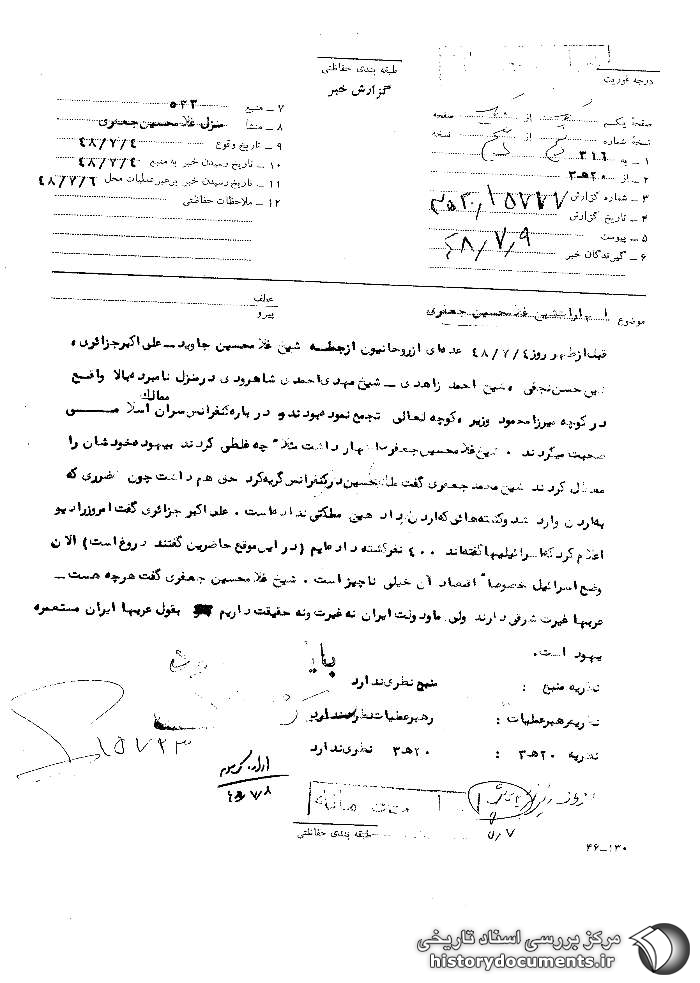 درجه فوریت
طبقه بندی حفاظتی
گزارش خبر
صفحه یکم از صفحه
نسخه شماره از نسخه
۱ ـ به ۳۱۶
۲ ـ از ۲۰ه۳
۳ ـ شماره گزارش ۲۰ه۳/۱۵۷۷۷
۴ ـ تاریخ گزارش
۵ ـ پیوست ۴۸/۷/۹
۶ ـ گیرندگان خبر
۷ ـ منبع ۵۴۳
۸ ـ منشأ منزل غلامحسین جعفری
۹ ـ تاریخ وقوع ۴۸/۷/۴
۱۰ ـ تاریخ رسیدن خبر به منبع ۴۸/۷/۴
۱۱ ـ تاریخ رسیدن خبر برهبر عملیات محل ۴۸/۷/۶
۱۲ ـ ملاحظات حفاظتی
موضوع شیخ غلامحسین جعفری
عطف
پیرو
قبل از ظهر روز ۴۸/۷/۴ عده‌ای از روحانیون از جمله شیخ غلامحسین جاوید ـ علی اکبر جزائری ،
شیخ حسن نجفی ، شیخ احمد زاهدی ـ شیخ مهدی احمدی شاهرودی در منزل نامبرده بالا واقع
در کوچه میرزا محمود وزیر ، کوچه لعالی تجمع نموده بودند و در باره کنفرانس سران ممالک اسلامی
صحبت میکردند . شیخ غلامحسین جعفری اظهار داشت مثلا" چه غلطی کردند بیهوده خودشان را
معطل کردند شیخ محمد جعفری گفت ملک حسین در کنفرانس گریه کرد حق هم داشت چون ضرری که
به اردن وارد شد و کشته هائی که اردن داد هیچ مملکتی نداده است . علی اکبر جزائری گفت امروز رادیو
اعلام کرد که اسرائیلیها گفته‌اند ۴۰۰ نفر کشته داده‌ایم (در این موقع حاضرین گفتند دروغ است) الان
وضع اسرائیل خصوصا" اقتصاد آن خیلی ناچیز است . شیخ غلامحسین جعفری گفت هرچه هست ـ
عربها غیرت شرفی دارند ولی ما و دولت ایران نه غیرت و نه حقیقت داریم بقول عربها ایران مستعمره
یهود است.
نظریه منبع : منبع نظری ندارد
نظریه رهبر عملیات : رهبر عملیات نظری ندارد
نظریه ۲۰ه۳ : ۲۰ه۳ نظری ندارد
۱۵۷۲۳
۴۸/۷/۸
۵/۷
طبقه بندی حفاظتی
۴۶ـ۱۳۰
مرکز بررسی اسناد تاریخی
historydocuments.ir